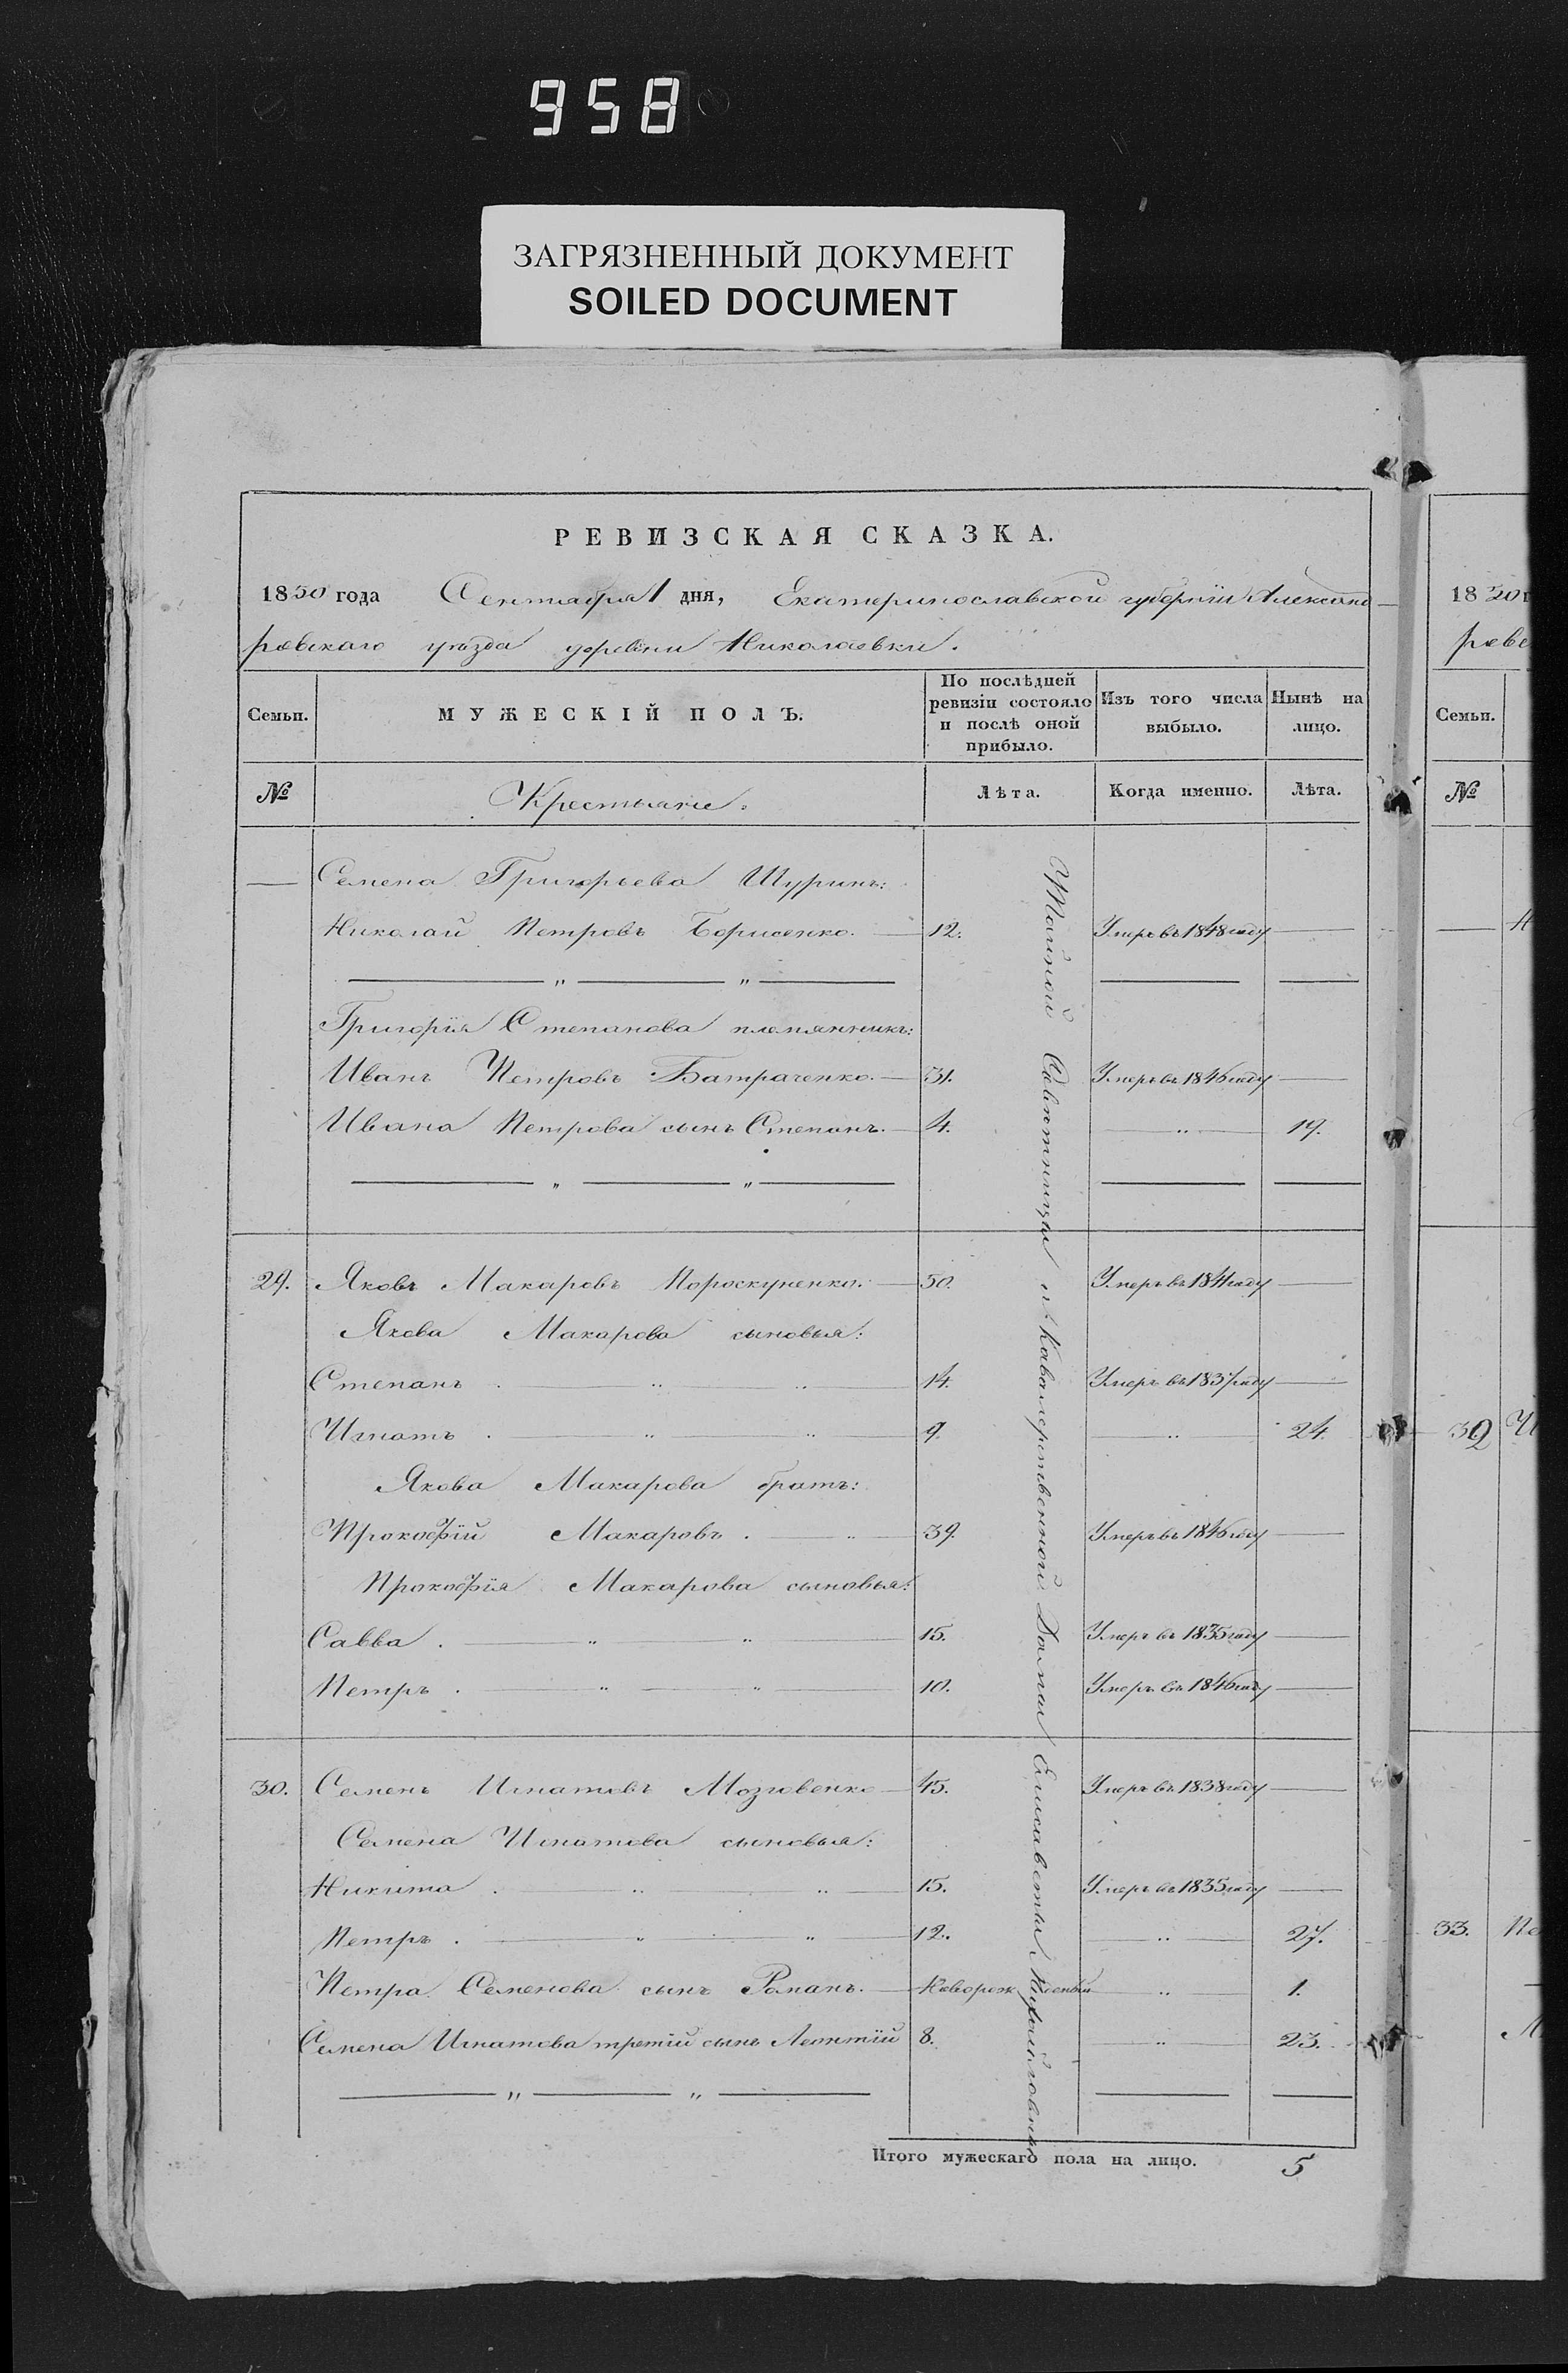 958
ЗАГРЯЗНЕННЫЙ ДОКУМЕНТ
SOILED DOCUMENT
РЕВИЗСКАЯ СКАЗКА.
1850 года Сентября 1 дня, Екатеринославской губернiи Александ
ровскаго уѣзда деревни Николаевки.
Семьи. МУЖЕСКІЙ ПОЛЪ. По послѣдней ревизіи состояло и послѣ оной прибыло. Изъ того числа выбыло. Нынѣ на лицо.
№ Крестьяне. Лѣта. Когда именно. Лѣта.
Семена Григорьева Шуринъ:
Николай Петровъ Борисенко. 12. Умеръ въ 1848 году
Григорія Степанова племянникъ:
Иванъ Петровъ Батраченко. 31. Умеръ въ 1846 году
Ивана Петрова сынъ Степанъ. 4. 19.
29. Яковъ Макаровъ Пороскуненко. 50. Умеръ въ 1841 году
Якова Макарова сыновья:
Степанъ 14. Умеръ въ 1837 году
Игнатъ 9. 24.
Якова Макарова братъ:
Прокофій Макаровъ 39. Умеръ въ 1846 году
Прокофія Макарова сыновья:
Савва 15. Умеръ въ 1835 году
Петръ 10. Умеръ въ 1846 году
30. Семенъ Игнатовъ Мозговенко 45. Умеръ въ 1838 году
Семена Игнатова сыновья:
Никита 15. Умеръ въ 1835 году
Петръ 12. 27.
Петра Семенова сынъ Романъ. Новорожденный 1.
Семена Игнатова третій сынъ Леонтій 8. 23.
Тайной Совѣтницы и Кавалерственной Дамы Елисаветы Михайловны
Итого мужескаго пола на лицо. 5
1850
реве
Семьи.
№
Н
32
33. Пе